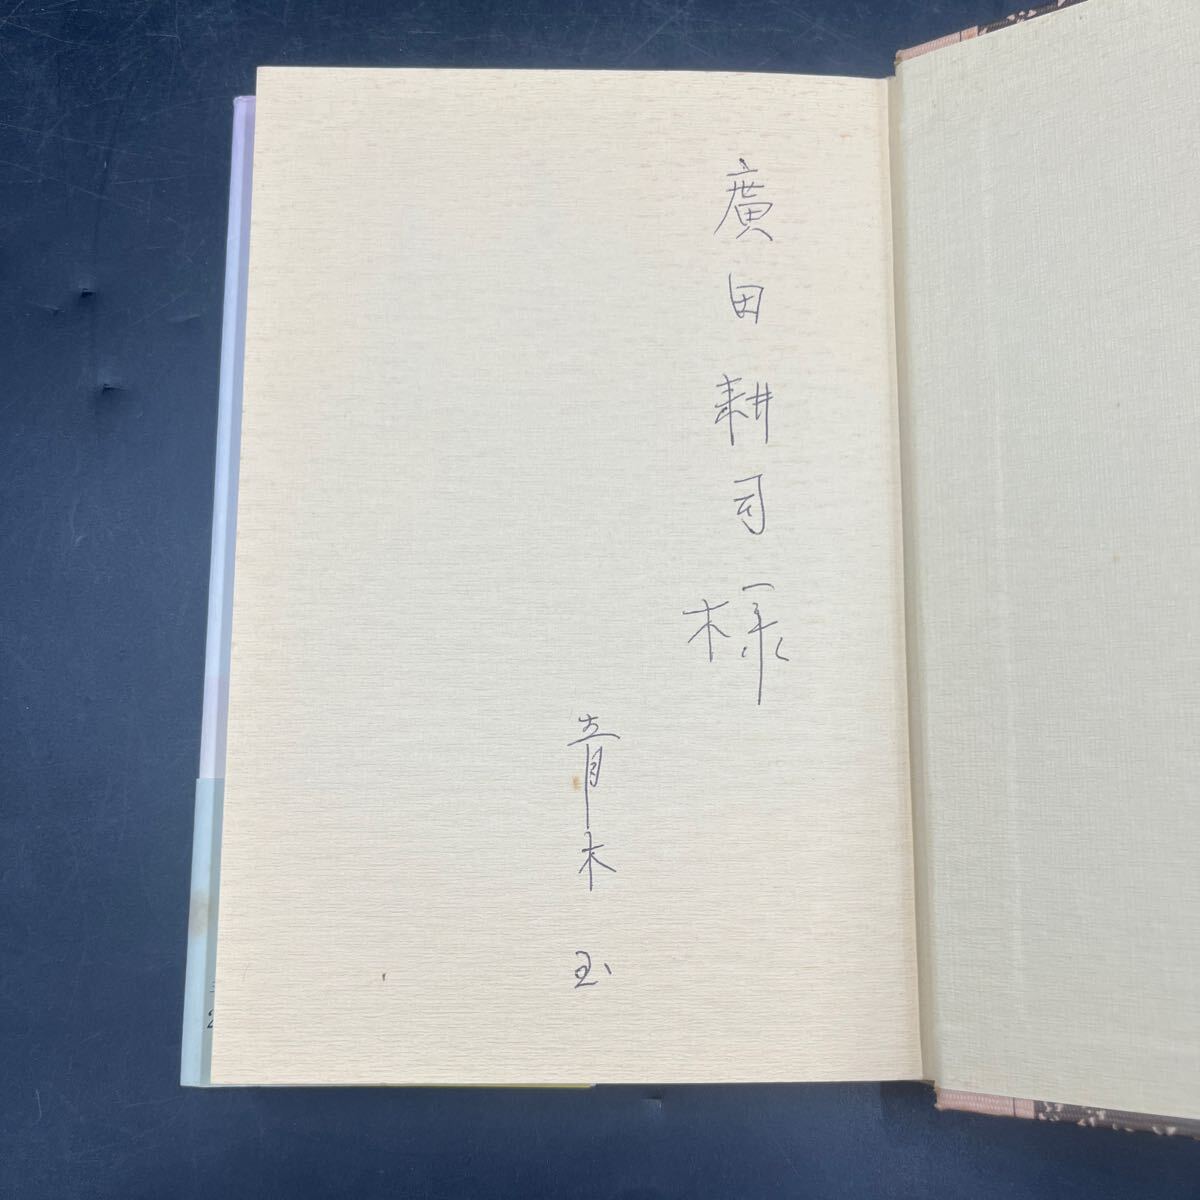 廣田耕司様
青木玉